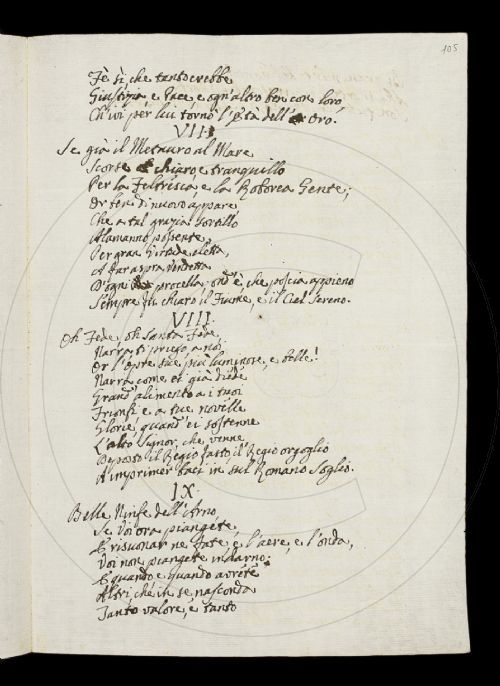 105
Fè sì, che tanto crebbe
Giustizia e Pace, e ogn'altro ben con loro,
Ch'ivi per lui tornò l'età dell' Oro.
VII.
Se già il Metauro al Mare
Scorse chiaro, e tranquillo
Per la Feltrisca e la Roborea Gente;
Or ben di nuovo appare
Che a tal grazia sortillo
Alamanno possente,
Per gran Virtude eletta,
A far aspra Vendetta
D'ogni procella, ond'è, che poscia appieno
Sempre fu chiaro il Fiume, e il Ciel sereno.
VIII.
Oh Fede, oh santa Fede,
Narra ti priego a noi
Or l'opre sue più luminose, e belle!
Narra come ei già diede
Grand' alimento a i tuoi
Trionfi e a tue novelle
Glorie, quand' ei sostenne
L'alto Signor, che venne
Deposto il Regio fasto il Regio orgoglio
A imprimer baci in sul Romano Soglio.
IX.
Belle Ninfe dell'Arno,
Se Voi ora piangete,
E risuonar ne fate, e l'aere, e l'onda,
Voi non piangete indarno:
E quando e quando avrete
Altri, che in se nasconda
Tanto valore, e tanto